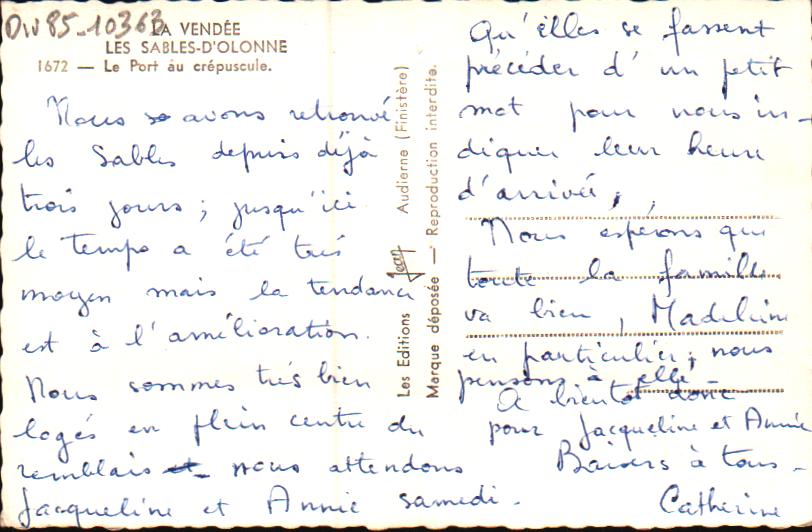 DW 85-10363
LA VENDÉE
LES SABLES-D'OLONNE
1672 — Le Port au crépuscule.
Nous avons retrouvé
les Sables depuis déjà
trois jours ; jusqu'ici
le temps a été très
moyen mais la tendance
est à l'amélioration.
Nous sommes très bien
logés en plein centre du
remblais nous attendons
Jacqueline et Annie samedi.
Les Editions Jean Audierne (Finistère)
Marque déposée — Reproduction interdite.
Qu'elles se fassent
précéder d'un petit
mot pour nous in-
diquer leur heure
d'arrivée,
Nous espérons que
toute la famille
va bien, Madeleine
en particulier ; nous
pensons à elle -
A bientôt donc
pour Jacqueline et Annie
Baisers à tous -
Catherine